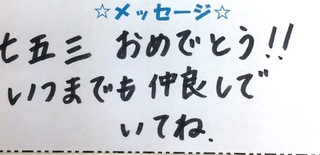 ☆メッセージ☆
七五三 おめでとう!!
いつまでも仲良しで
いてね.